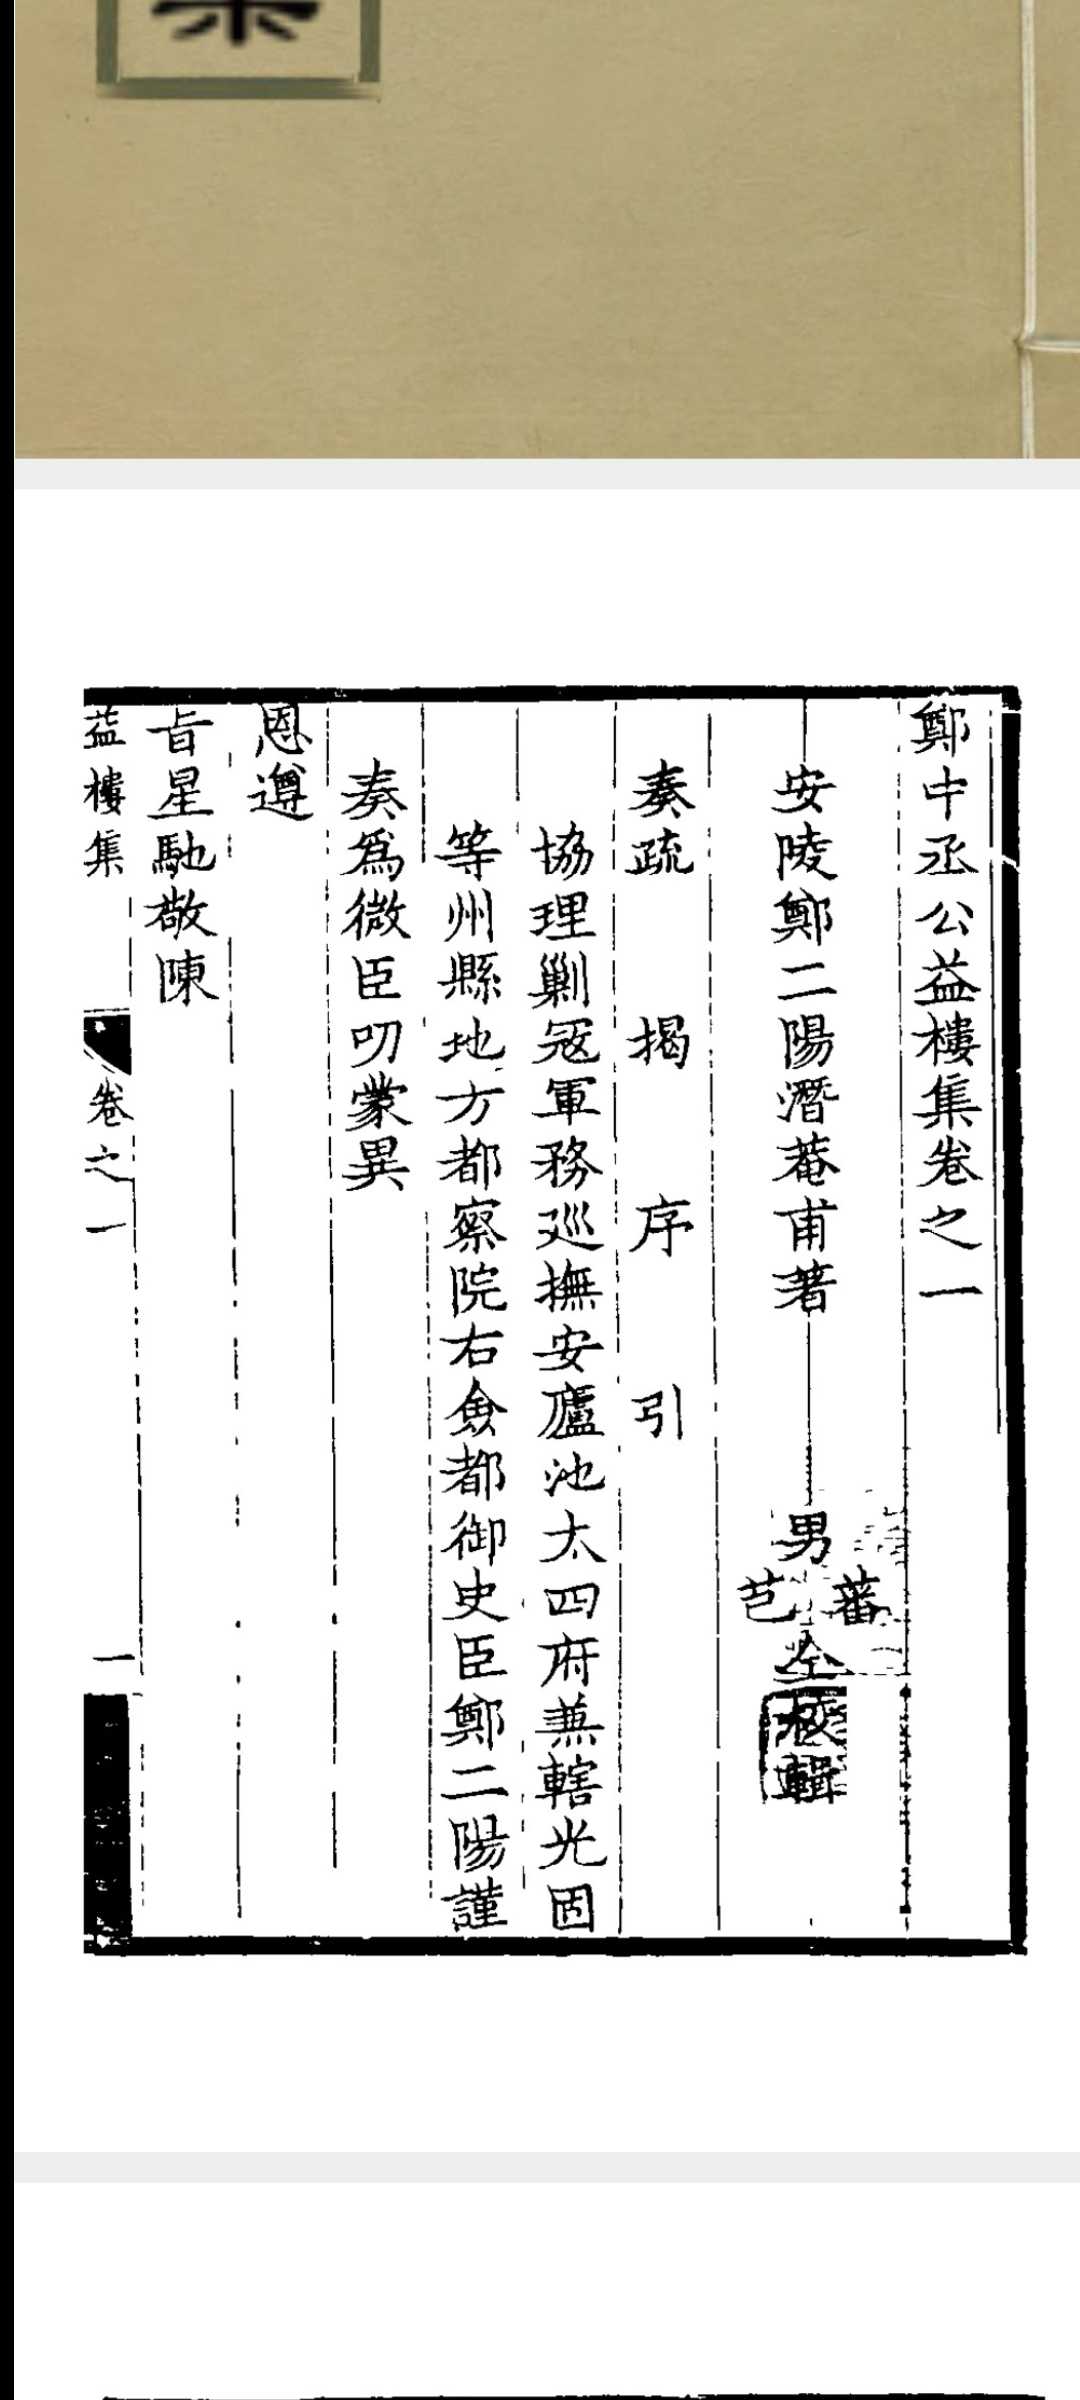 鄭中丞公益樓集卷之一
安陵鄭二陽潛菴甫著 男 蕃 芑 仝校輯
奏疏 揭 序 引
協理剿宼軍務巡撫安廬池太四府兼轄光固
等州縣地方都察院右僉都御史臣鄭二陽謹
奏爲微臣叨蒙異
恩遵
旨星馳敬陳
益樓集 卷之一 一